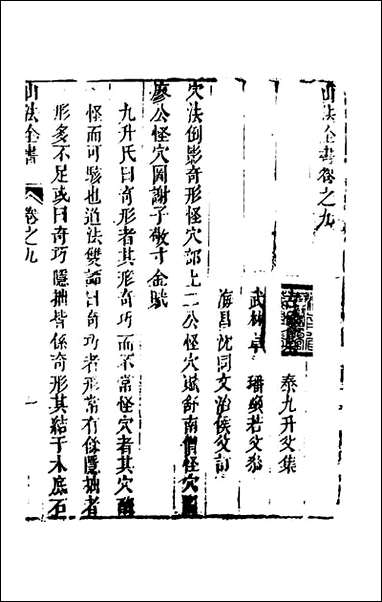 山法全書卷之九
泰九升父集
武林卓 珊 若父叅
海昌沈同文治侯父訂
穴法倒影奇形怪穴部上二公怪穴賦舒南僧怪穴
廖公怪穴圖謝子敬寸金賦
九升氏曰奇形者其形奇巧而不常怪穴者其穴醜
怪而可駭也道法雙譚曰奇巧者形常有餘隱拙者
形多不足或曰奇巧隱拙皆係奇形其結于木底石
山法全書
卷之九
一